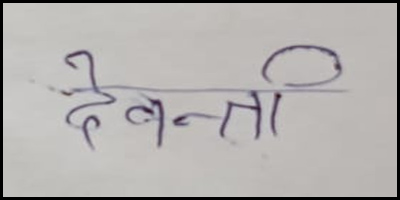 देवन्ती